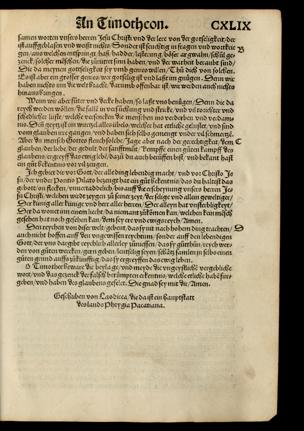 An Timotheon. CXLIX
samen worten unsers herren Jesu Christi und der leer von der gotseligkeit, der
ist auffgeblasen und weißt nichts. Sonder ist seuchtig in fragen und wortkrie
gen, auß welchen entspringt haß, hadder, lästerung, böser argwon, schül gezenck
solcher menschen, die zerrüttet sinn haben, und der warheit beraubt sind/
Die da meynen gotseligkeit sey umb genieß willen. Thü dich von solchen.
Es ist aber ein grosser gewin wer gotselig ist und laßt im genügen. Denn wir
haben nichts in die welt bracht, darumb offenbar ist, wir werden auch nichts
hinauß bringen.
Wenn wir aber füter und decke haben, so laßt uns benügen, Denn die da
reych werden wöllen, die fallen in versüchung und strick, und vil
schedlicher lüste, welche versencken die menschen inns verderben und verdam
nis. Denn geytz ist ein wurtzel alles übels, welchs hat etliche gelustet, und sind
vom glauben irre gangen, und haben sich selbs gemengt under vil schmertzen.
Aber du mensch Gottes fleuch solchs, Jage aber nach der gerechtigkeit, dem
glauben, der liebe, der gedult, der sanfftmüt, Kempffe einen gütten kampff des
glaubens, ergreyff das ewig lebe, dazu du auch berüffen bist, und bekant hast
ein gut bekentnus vor vil zeugen.
Ich gebiet dir vor Got, der alle ding lebendig macht, und vor Christo Je
su, der under Pontio Pilato bezeugt hat ein gut bekentnus, das du haltest das
gebott on flecken, untadelich, biß auff die erscheynung unsers herren Je
su Christi, welchen wirdt zeygen zu seiner zeyt, der selige und allein geweltiger,
Der künig aller künig und herr aller herren, Der allein hat unsterbligkeyt,
Der da wonet
gesehen hat noch gesehen kan, dem sey eer und ewigs reych, Amen.
Den reychen von diser welt, gebeut, das sy nit nach hohem ding trachten,
auch nicht hoffen auff den ungewissen reychtum, sonder auff den lebendigen
Got, der uns dargibt reychlich allerley zu niessen, das sy güts thün, reych wer
den von gütten wercken, gern geben,
gütten grund auffs zukünfftig, das sy ergreyffen das ewig leben.
O Timothee bewar die beylag, und meyde die ungeystliche vergebliche
wort, und das gezenck der falsch berümpten erkentnus, welche etliche
geben, und haben des glaubens gefelet. Die gnad sey mit dir, Amen.
Geschriben von Laodicea, die da ist ein hauptstatt
des lands Phrygia Pacatiana.